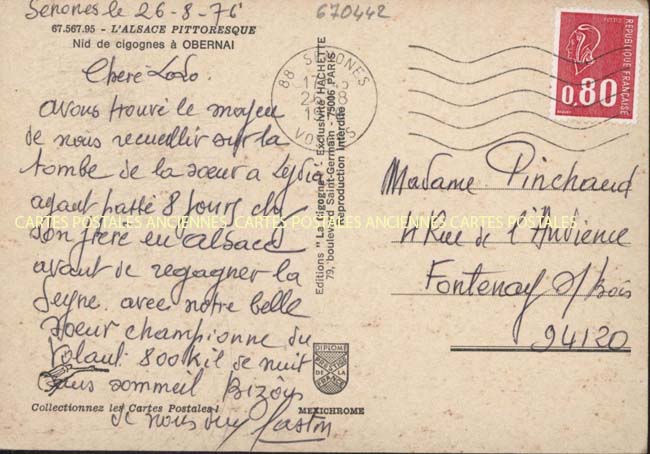 Senones le 26-8-76
670442
67.567.95 - "L'ALSACE PITTORESQUE
Nid de cigognes à OBERNAI
Chère Lodo.
avons trouvé le moyen
de nous recueillir sur la
tombe de la soeur a Lydia
ayant passé 8 jours chez
son frère en alsace
avant de regagner la
Seyne. avec notre belle
soeur championne du
Volant. 800 kil de nuit
sans sommeil Bizous
de nous Gaston
Collectionnez les Cartes Postales !
Editions "La Cigogne" - Exclusivité HACHETTE
79, boulevard Saint-Germain - 75006 PARIS
Reproduction Interdite
88 SENONES
VOSGES
0,80
REPUBLIQUE FRANÇAISE
Madame Pinchaud
11 Rue de l'Audience
Fontenay s/bois
94120
DIPLOME
PRESTIGE
DE LA
FRANCE
MEXICHROME
CARTES POSTALES ANCIENNES CARTES POSTALES ANCIENNES CARTES POSTALES